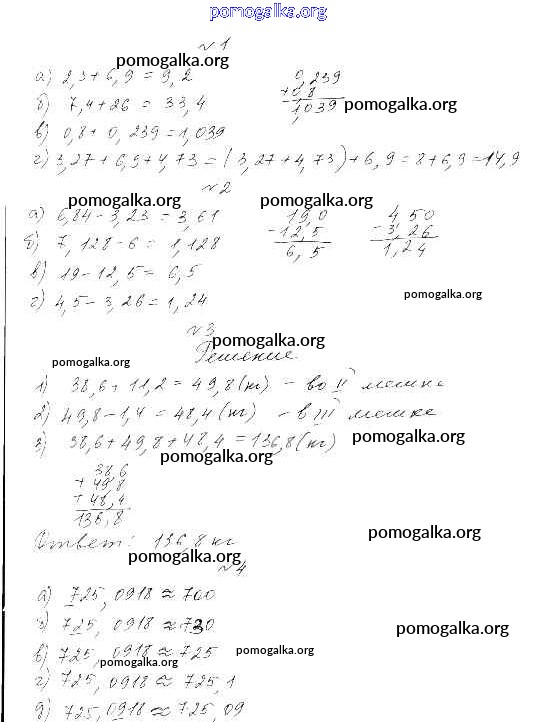 pomogalka.org
№1
pomogalka.org
а) 2,3+6,9 = 9,2
0,239
+0,8
1,039
pomogalka.org
б) 7,4+26 = 33,4
в) 0,8+0,239=1,039
г) 3,27+6,9+4,73=(3,27+4,73)+6,9=8+6,9=14,9
№2
pomogalka.org
pomogalka.org
а) 6,84-3,23=3,61
19,0
-12,5
6,5
4,50
-3,26
1,24
б) 7,128-6=1,128
в) 19-12,5=6,5
г) 4,5-3,26=1,24
pomogalka.org
№3
pomogalka.org
Решение
pomogalka.org
1) 38,6+11,2=49,8(кг) - во II мешке
2) 49,8-1,4=48,4(кг) - в III мешке
3) 38,6+49,8+48,4=136,8(кг)
pomogalka.org
pomogalka.org
38,6
+ 49,8
+ 48,4
136,8
pomogalka.org
Ответ: 136,8 кг
pomogalka.org
№4
а) 725,0918≈700
б) 725,0918≈730
pomogalka.org
в) 725,0918≈725
pomogalka.org
pomogalka.org
г) 725,0918≈725,1
д) 725,0918≈725,09